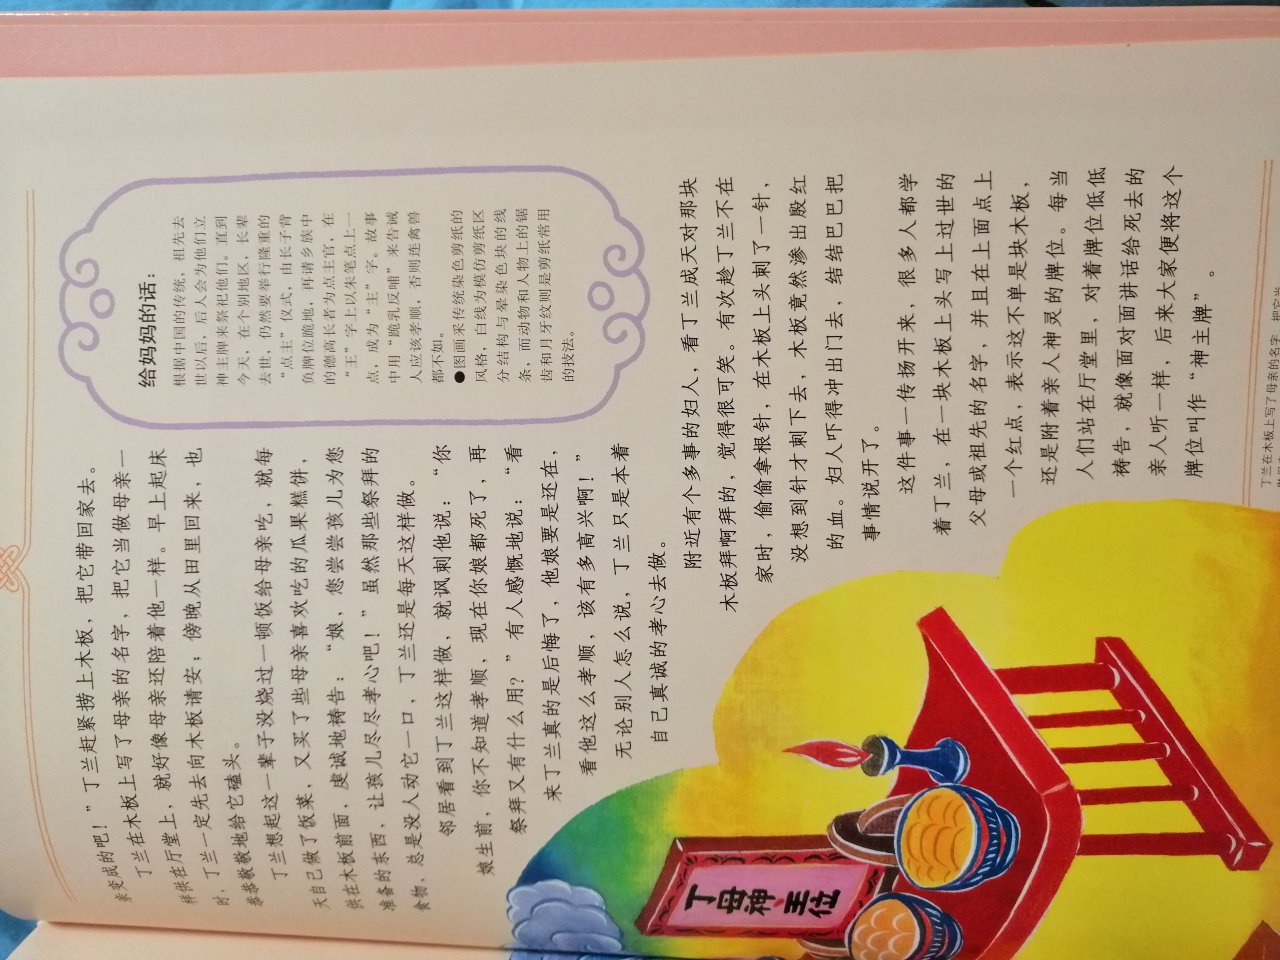 亲变成的吧！”丁兰赶紧捞上木板，把它带回家去。
丁兰在木板上写了母亲的名字，把它当做母亲一
样供在厅堂上，就好像母亲还陪着他一样。早上起床
时，丁兰一定先去向木板请安；傍晚从田里回来，也
恭恭敬敬地给它磕头。
丁兰想起这一辈子没烧过一顿饭给母亲吃，就每
天自己做了饭菜，又买了些母亲喜欢吃的瓜果糕饼，
供在木板前面，虔诚地祷告：“娘，您尝尝孩儿为您
准备的东西，让孩儿尽尽孝心吧！”虽然那些祭拜的
食物，总是没人动它一口，丁兰还是每天这样做。
邻居看到丁兰这样做，就讽刺他说：“你
娘生前，你不知道孝顺，现在你娘都死了，再
祭拜又有什么用？”有人感慨地说：“看
来丁兰真的是后悔了，他娘要是还在，
看他这么孝顺，该有多高兴啊！”
无论别人怎么说，丁兰只是本着
自己真诚的孝心去做。
附近有个多事的妇人，看丁兰成天对那块
木板拜啊拜的，觉得很可笑。有次趁丁兰不在
家时，偷偷拿根针，在木板上头刺了一针，
没想到针才刺下去，木板竟然渗出殷红
的血。妇人吓得冲出门去，结结巴巴把
事情说开了。
这件事一传扬开来，很多人都学
着丁兰，在一块木板上头写上过世的
父母或祖先的名字，并且在上面点上
一个红点，表示这不单是块木板，
还是附着亲人神灵的牌位。每当
人们站在厅堂里，对着牌位低低
祷告，就像面对面讲话给死去的
亲人听一样，后来大家便将这个
牌位叫作“神主牌”。
给妈妈的话：
根据中国的传统，祖先去
世以后，后人会为他们立
神主牌来祭祀他们。直到
今天，在个别地区，长辈
去世，仍然要举行隆重的
“点主”仪式，由长子背
负牌位跪地，再请乡族中
的德高长者为点主官，在
“王”字上以朱笔点上一
点，成为“主”字。故事
中用“跪乳反哺”来告诫
人应该孝顺，否则连禽兽
都不如。
●图画采传统染色剪纸的
风格，白线为模仿剪纸区
分结构与晕染色块的线
条，而动物和人物上的锯
齿和月牙纹则是剪纸常用
的技法。
丁母神主位
丁兰在木板上写了母亲的名字，把它当